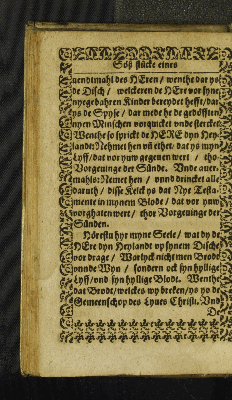 Söß stücke eines
nendtmahl des HEren / wenthe dar ys
de Disch / welckeren de HEre vor syne
nyegebahren Kinder bereydet hefft / dar
ys de Spyse / dar mede he de gedöfften
nyen Minschen vorquicket unde stercket
Wenthe so sprickt de HERE dyn Hey-
landt: Nehmet hen vñ ethet / dat ys myn
Lyff / dat vor yuw gegeuen wert / tho
Vorgeuinge der Sünde. Unde auer-
mahls: Nemet hen / vnnd drincket alle
daruth / disse Kelck ys dat Nye Testa-
mente in mynem Blode / dat vor yuw
vorghaten wert / thor Vorgeuinge der
Sünden.
Hörestu hyr myne Seele / wat dy de
HEre dyn Heylandt vp synem Dische
vor drage / Warlyck nicht men Brodt
vnnde Wyn / sondern ock syn hyllige
Lyff / vnd syn hyllige Blodt. Wenthe
dat Brodt / welckes wy breken / ys yo de
Gemeenschop des Lyues Christi. Vnd
D